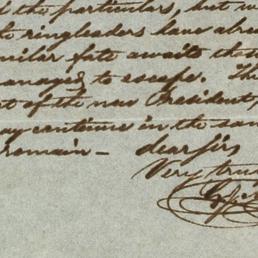 the particulars, but
ringleaders have
similar fate awaits
managed to escape. The
of the new President,
may continue in the
remain — dear Sir
Very